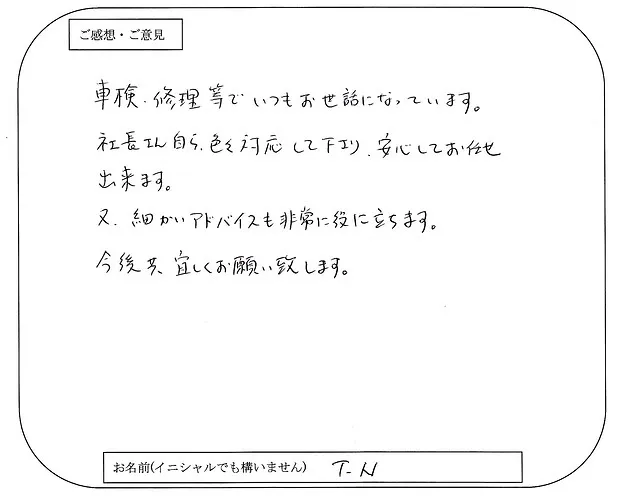 ご感想・ご意見
車検、修理等でいつもお世話になっています。
社長さん自ら、色々対応して下さり、安心してお任せ
出来ます。
又、細かいアドバイスも非常に役に立ちます。
今後共、宜しくお願い致します。
お名前(イニシャルでも構いません) T-N